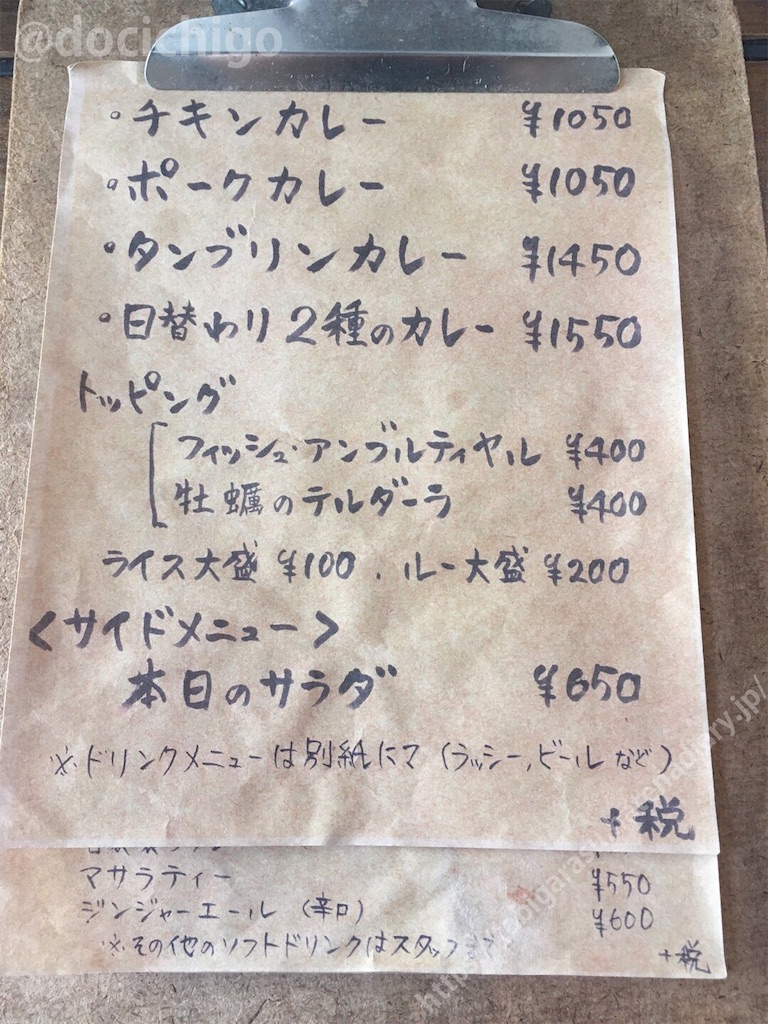 @docichigo
・チキンカレー ¥1050
・ポークカレー ¥1050
・タンブリンカレー ¥1450
・日替わり2種のカレー ¥1550
トッピング
フィッシュ・アンブルティヤル ¥400
牡蠣のテルダーラ ¥400
ライス大盛 ¥100 . ルー大盛 ¥200
<サイドメニュー>
本日のサラダ ¥650
※ドリンクメニューは別紙にて (ラッシー,ビールなど)
+税
マサラティー ¥550
ジンジャーエール (辛口) ¥600
※その他のソフトドリンクはスタッフ
+税